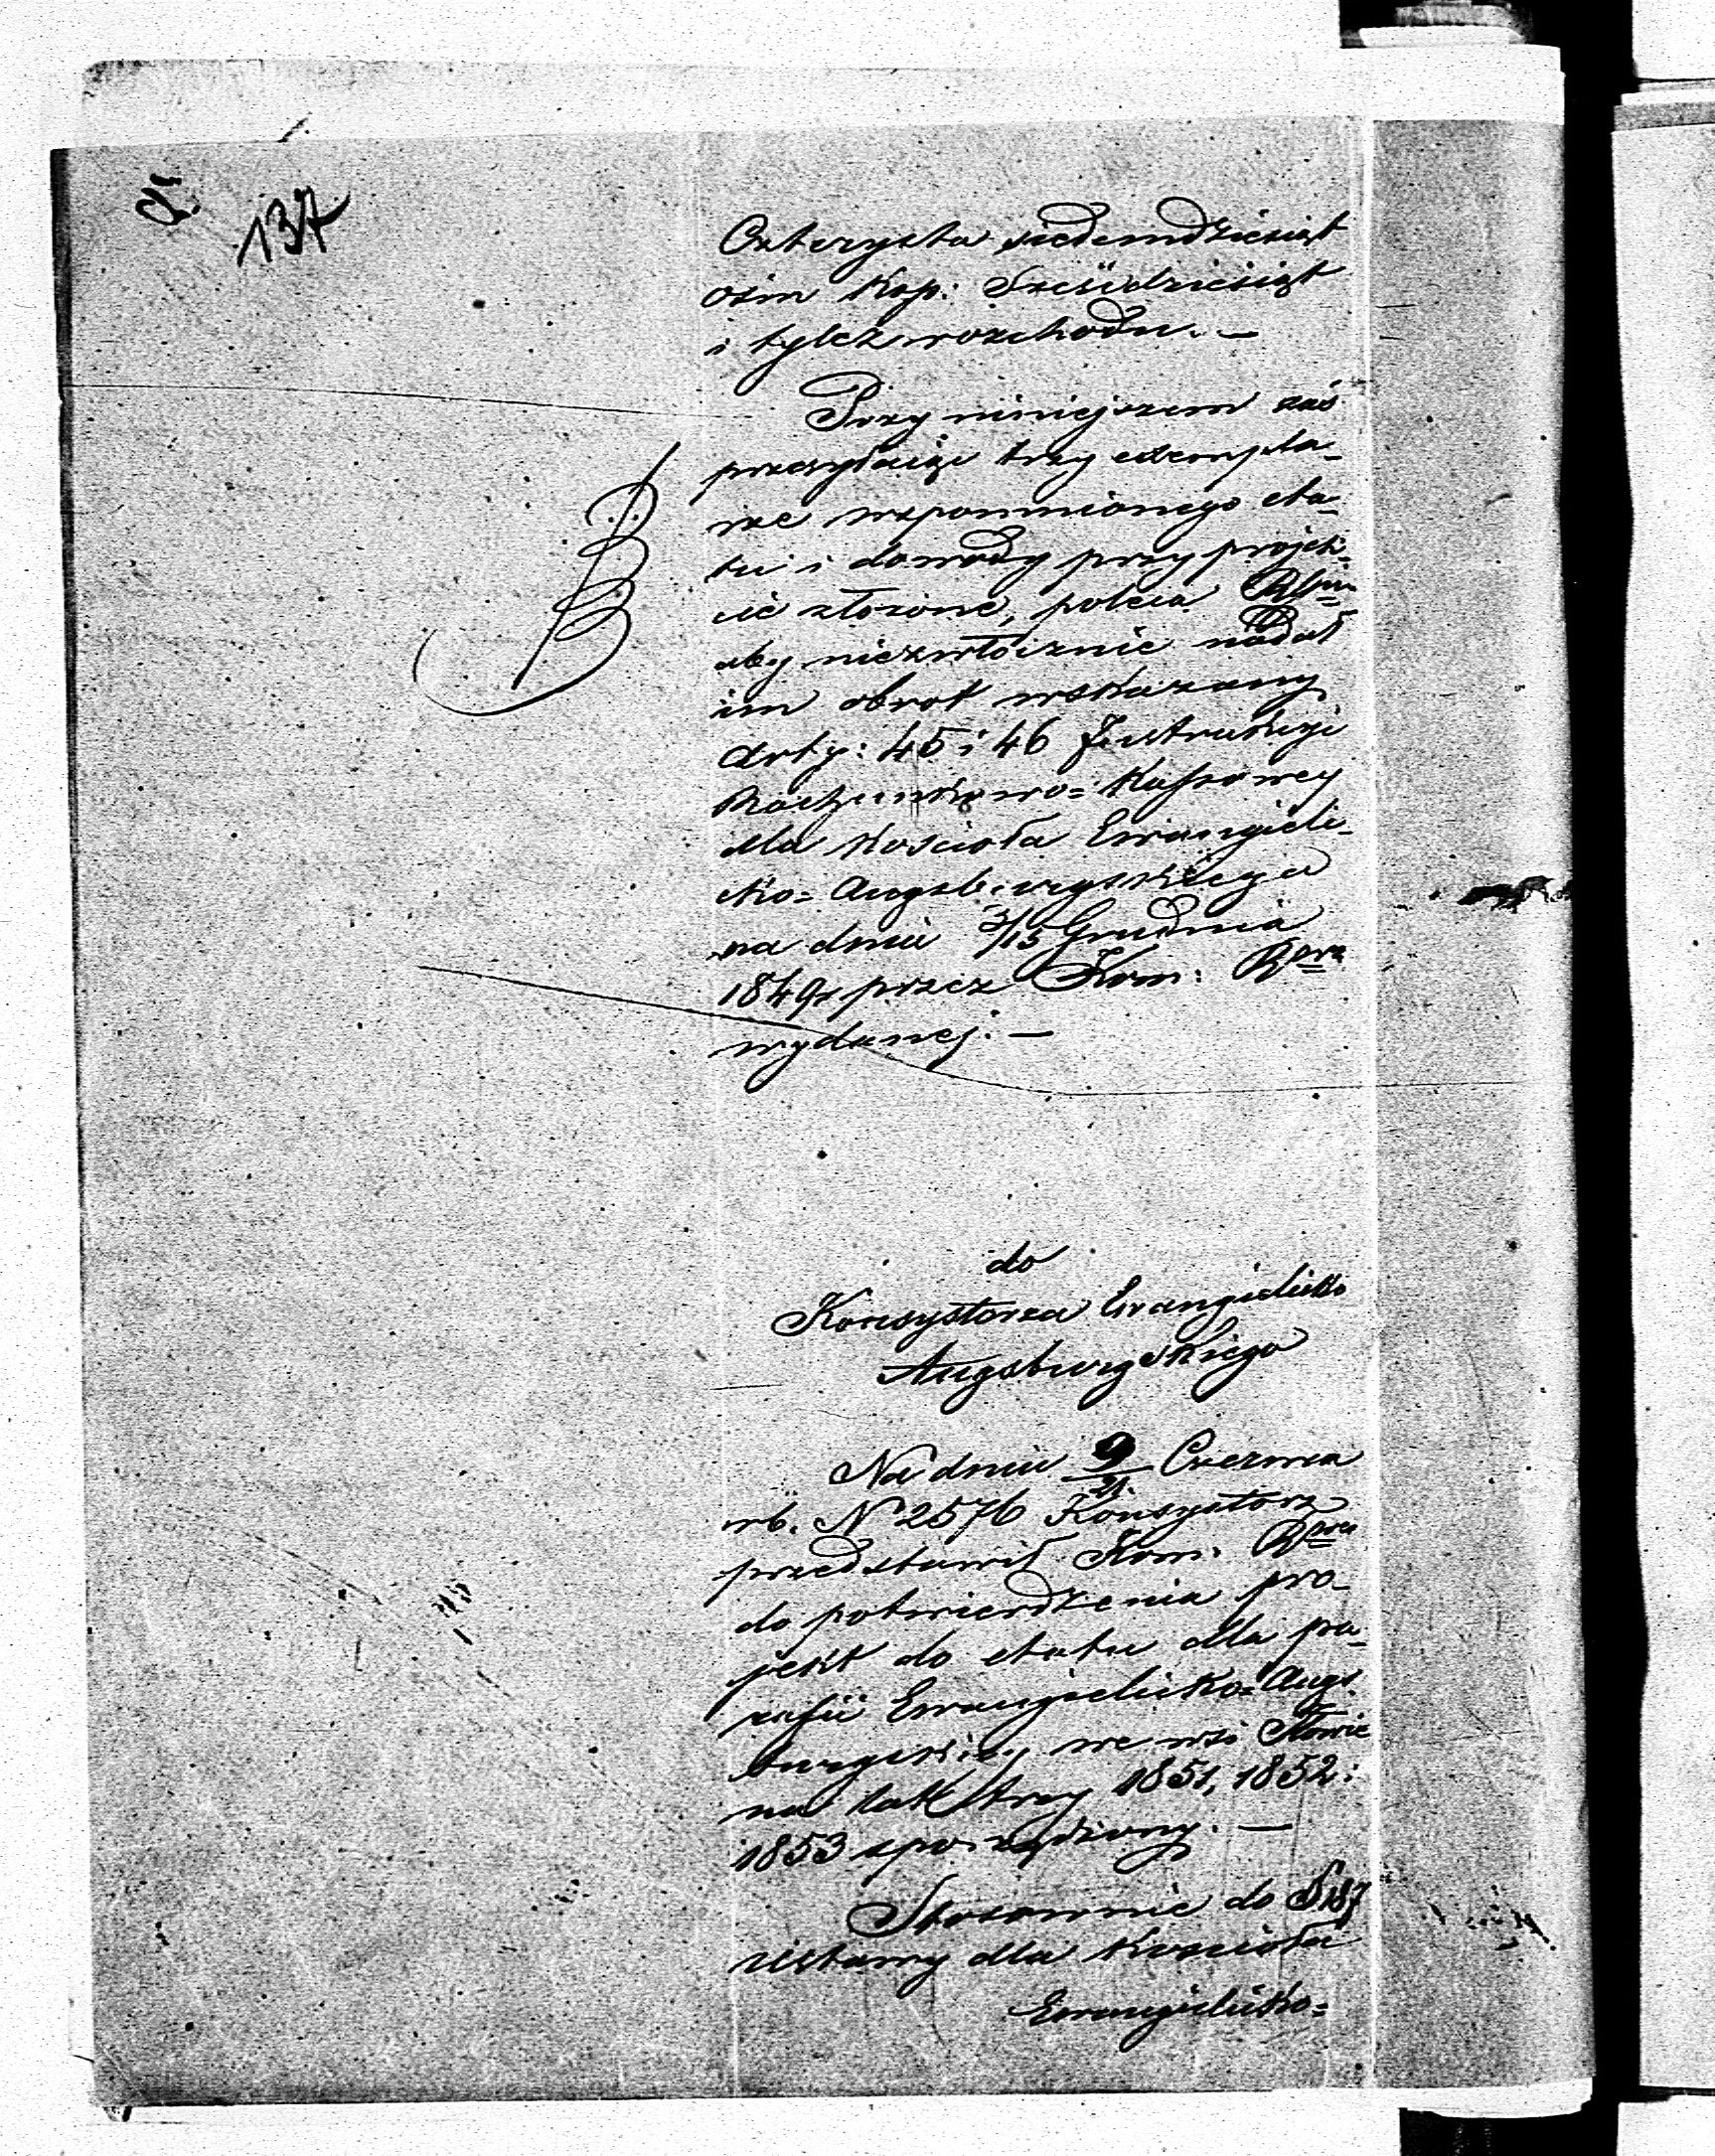 137
Czterysta siedemdziesiąt
ośm Kop: Sześćdziesiąt
i tyleż rozchodu. —
Przy niniejszem zaś
przesyłaiąc trzy exempla-
rze wspomnionego eta-
tu i dowody przy projek-
cie złożone, poleca
aby niezwłocznie nadał
im obrot wskazany
Arty: 45 i 46 Instrukcyi
Rachunkowo= Kassowey
dla Kościoła Ewangieli-
cko= Augsburgskiego
na dniu 3/15 Grudnia
1849 r. przez Kom: Rową
wydanej. —
do
Konsystorza Ewangielicko
Augsburgskiego
Na dniu 9/21 Czerwca
rb. N 2576 Konsystorz
przedstawił Kom: Rowej
do potwierdzenia pro-
jekt do etatu dla pa-
rafii Ewangielicko= Augs
burgskiej we wsi
na lat trzy 1851, 1852 i
1853 sporządzony. —
Stosownie do § 187
Ustawy dla Kościoła
Ewangielicko=